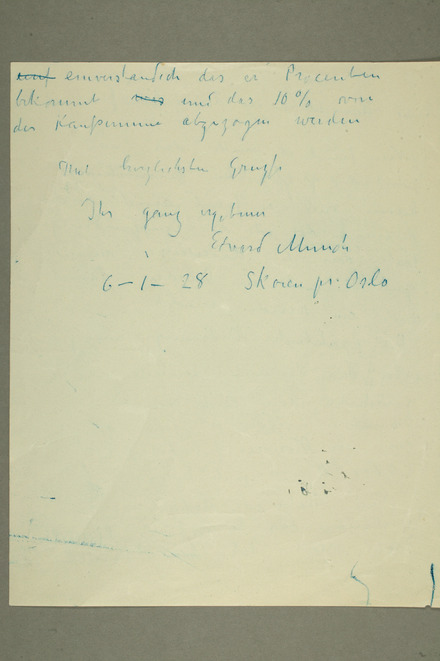 einverstandich das er Procenten
bekommt und das 10% vom
der Kaufsumme abgezogen werden
Mit herzlichsten Gruss
Ihr ganz ergebener
Edvard Munch
6–1–28 Skøien pr. Oslo